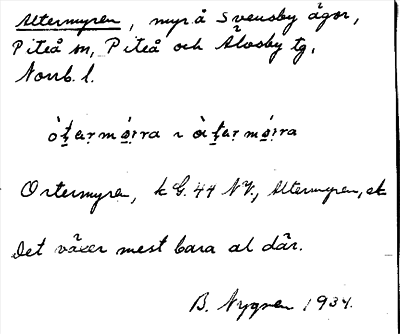 Altermyren, myr å Svensby ägor,
Piteå sn, Piteå och Älvsby tg,
Norrb. l.
òt̠aṛmó̠ṛra ~ àt̠aṛmó̠ṛra
Ortermyra, k G. 44 NV., Altermyren, ek
Det växer mest bara al där.
B. Nygren 1934.